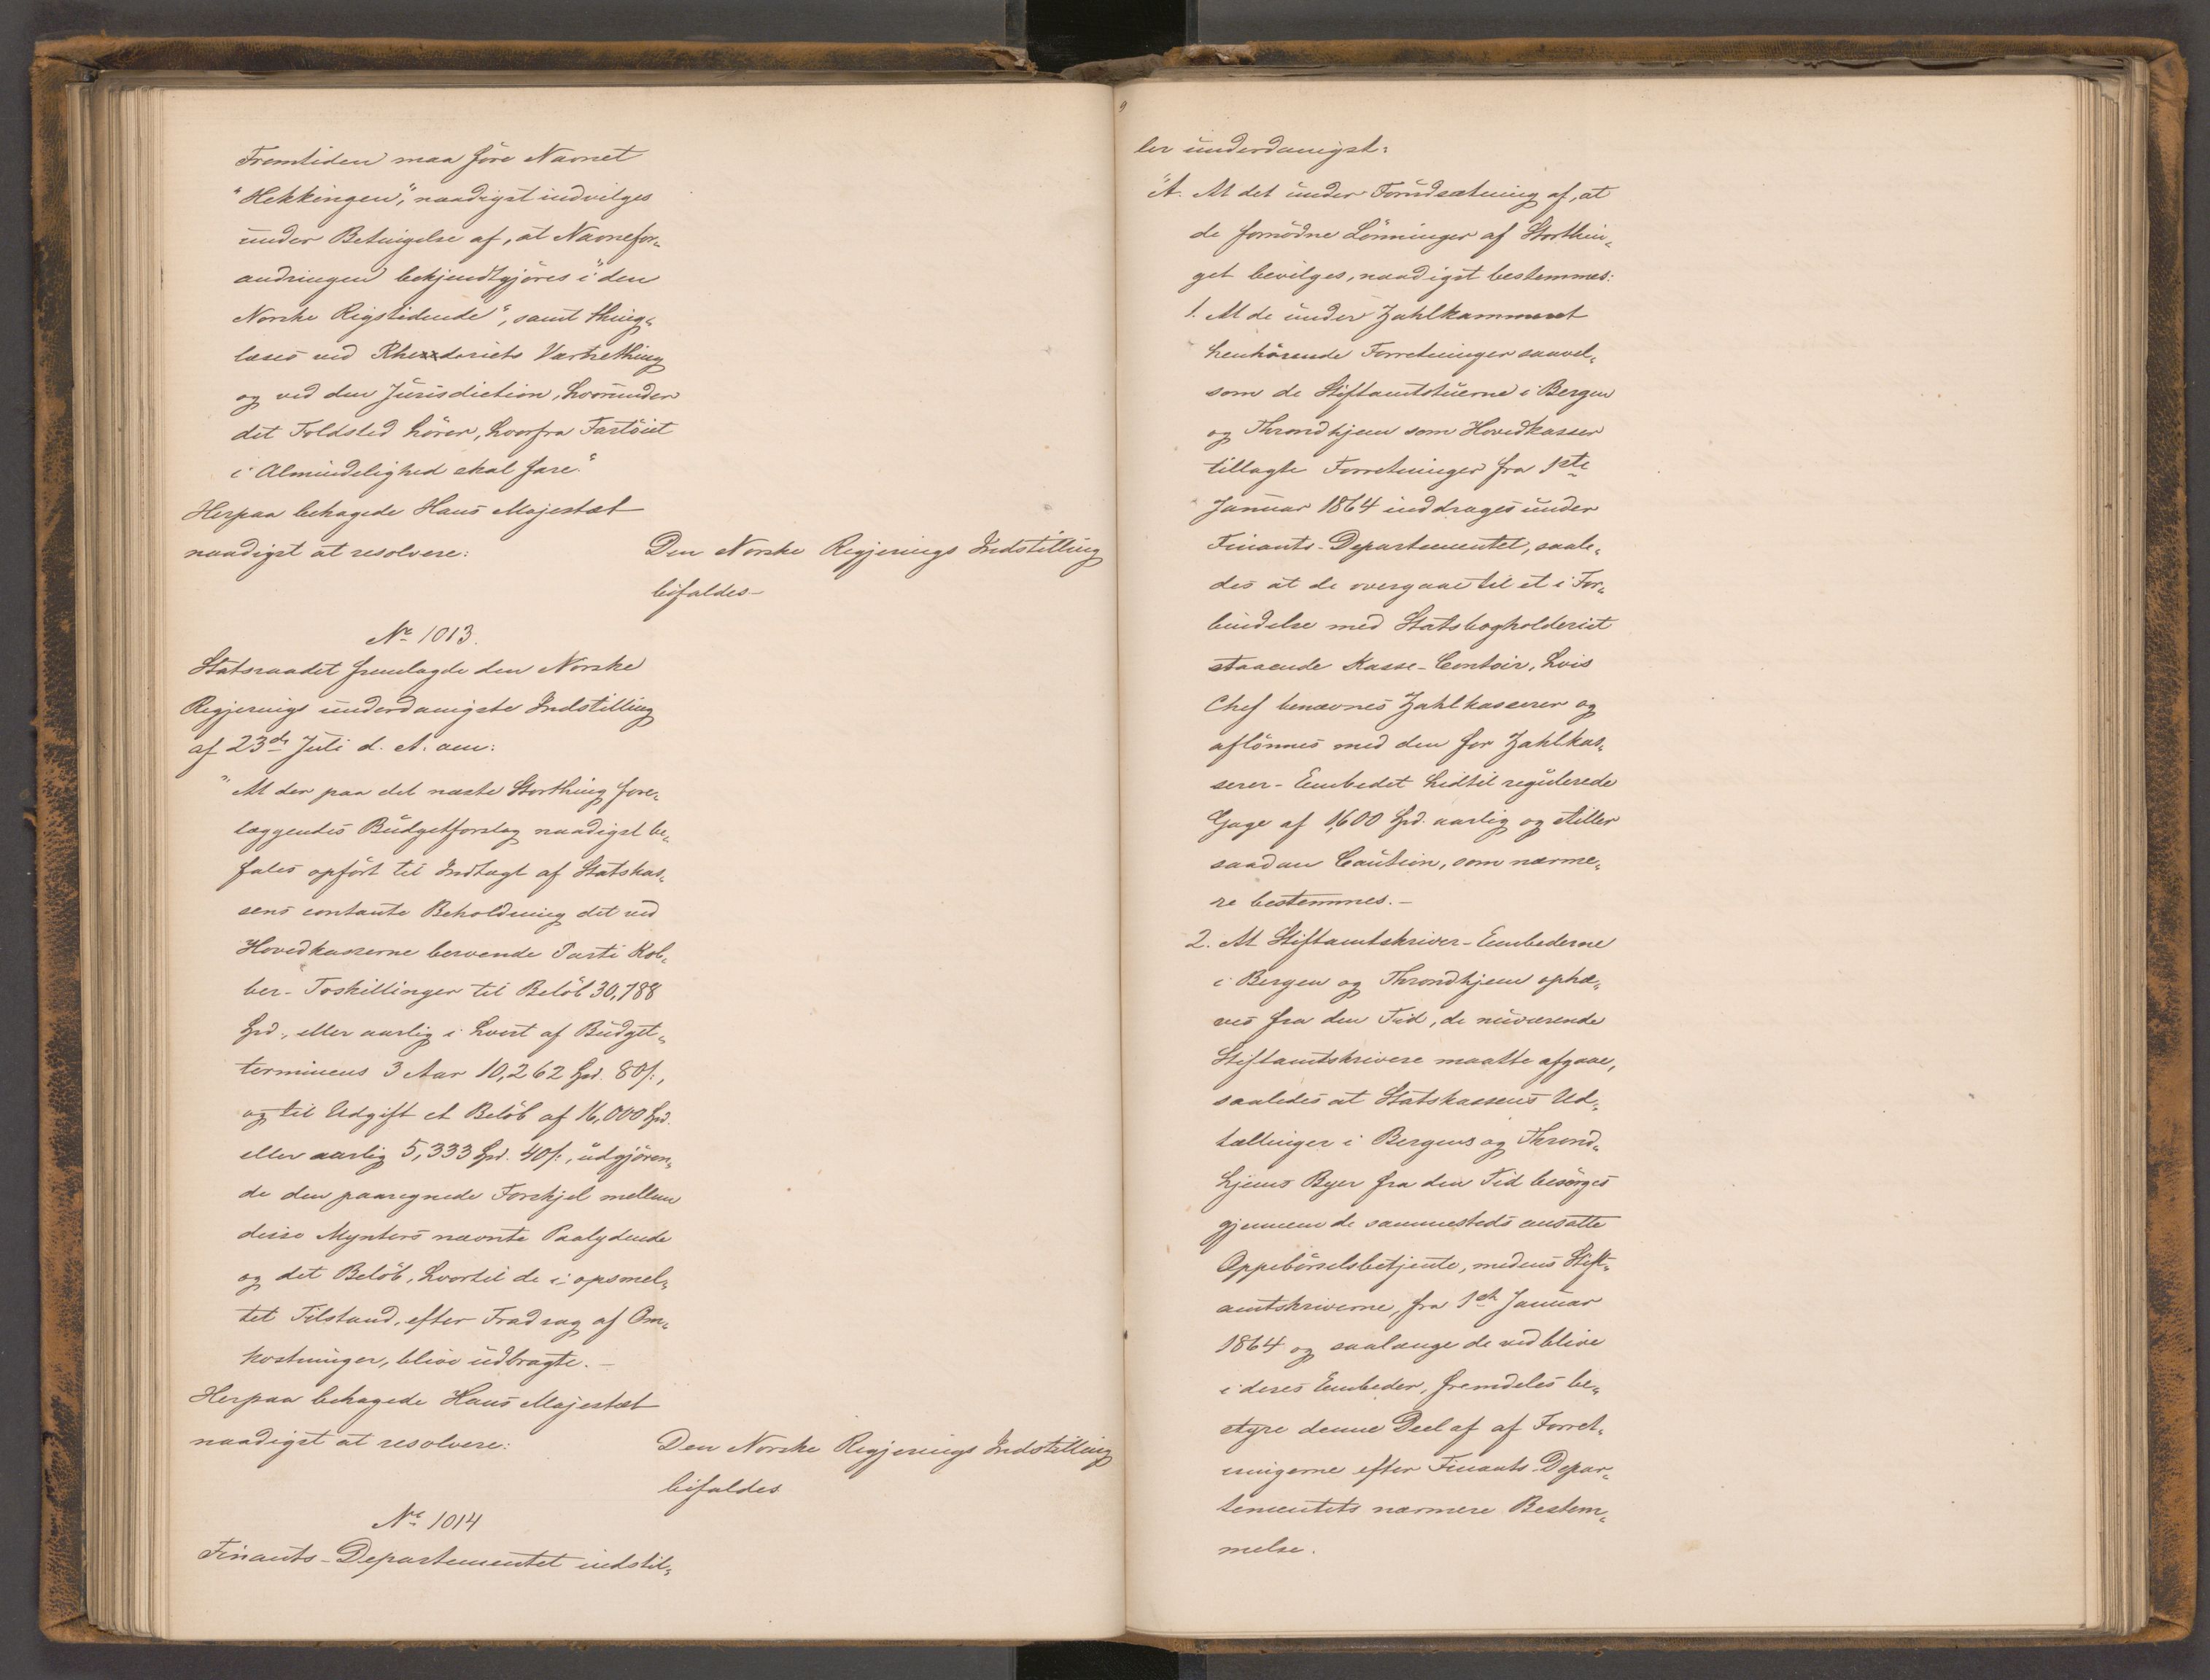 Fremtiden maa føre Navnet
"Hekkingen", naadigst indvilges
under Betingelse af, at Navnefor„
andringen bekjendtgjøres i "den
Norske Rigstidende", samt thing„
læses ved Rhederiets Værnething
og ved den Jurisdiction, hvorunder
det Toldsted hører, hvorfra Fartøiet
i Almindelighed skal fare."
Herpaa behagede Hans Majestæt
naadigst at resolvere:
Den Norske Regjerings Indstilling
bifaldes -
No 1013.
Statsraadet fremlagde den Norske
Regjerings underdanigste Indstilling
af 23de Juli d. A. om:
"At der paa det næste Storthing fore„
læggendes Budgetforslag naadigst be„
fales opført til Indtægt af Statskas„
sens contante Beholdning det ved
Hovedkasserne beroende Parti Kob„
ber-Toskillinger til Beløb 30,788
Spd., eller aarlig i hvert af Budget„
terminens 3 Aar 10,262 Spd. 80 s.,
og til Udgift et Beløb af 16,000 Spd.
eller aarlig 5,333 Spd. 40 s., udgjøren„
de den paaregnede Forskjel mellem
disse Mynters nævnte Paalydende
og det Beløb, hvortil de i opsmel„
tet Tilstand, efter Fradrag af Om„
kostninger, blive udbragte. -
Herpaa behagede Hans Majestæt
naadigst at resolvere:
Den Norske Regjerings Indstilling
bifaldes
No 1014
Finants-Departementet indstil„
ler underdanigst:
"A. At det under Forudsætning af, at
de fornødne Lønninger af Storthin„
get bevilges, naadigst bestemmes:
1. At de under Zahlkammeret
henhørende Forretninger saavel„
som de Stiftamtstuerne i Bergen
og Throndhjem som Hovedkasser
tillagte Forretninger fra 1ste
Januar 1864 inddrages under
Finants-Departementet, saale„
des at de overgaae til et i For„
bindelse med Statsbogholderiet
staaende Kasse-Contoir, hvis
Chef benævnes Zahlkasserer og
aflønnes med den for Zahlkas„
serer-Embedet hidtil regulerede
Gage af 1,600 Spd. aarlig og stiller
saadan Caution, som nærme„
re bestemmes. -
2. At Stiftamtskriver-Embederne
i Bergen og Throndhjem ophæ„
ves fra den Tid, de nuværende
Stiftamtskrivere maatte afgaae,
saaledes at Statskassens Ud„
tællinger i Bergens og Thrond„
hjems Byer fra den Tid besørges
gjennem de sammesteds ansatte
Oppebørselsbetjente, medens Stift„
amtskriverne, fra 1ste Januar
1864 og saalænge de vedblive
i deres Embeder, fremdeles be„
styre denne Deel af af Forret„
ningerne efter Finants-Depar„
tementets nærmere Bestem„
melse.